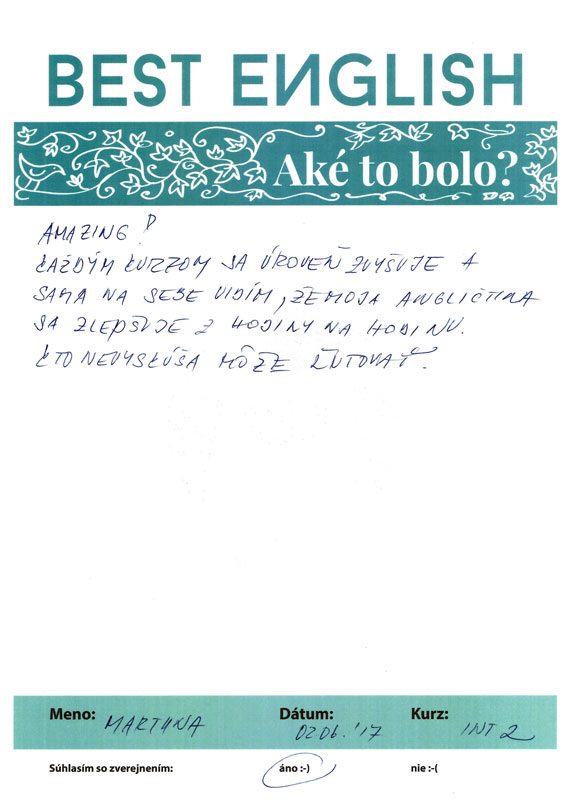 BEST ENGLISH
Aké to bolo?
AMAZING!
KAŽDÝM KURZOM SA ÚROVEŇ ZVYŠUJE A
SAMA NA SEBE VIDÍM, ŽE MOJA ANGLIČTINA
SA ZLEPŠUJE Z HODINY NA HODINU.
KTO NEVYSKÚŠA MÔŽE ĽUTOVAŤ.
Meno: MARTINA Dátum: 02.06.'17 Kurz: INT 2
Súhlasím so zverejnením: áno :-) nie :-(